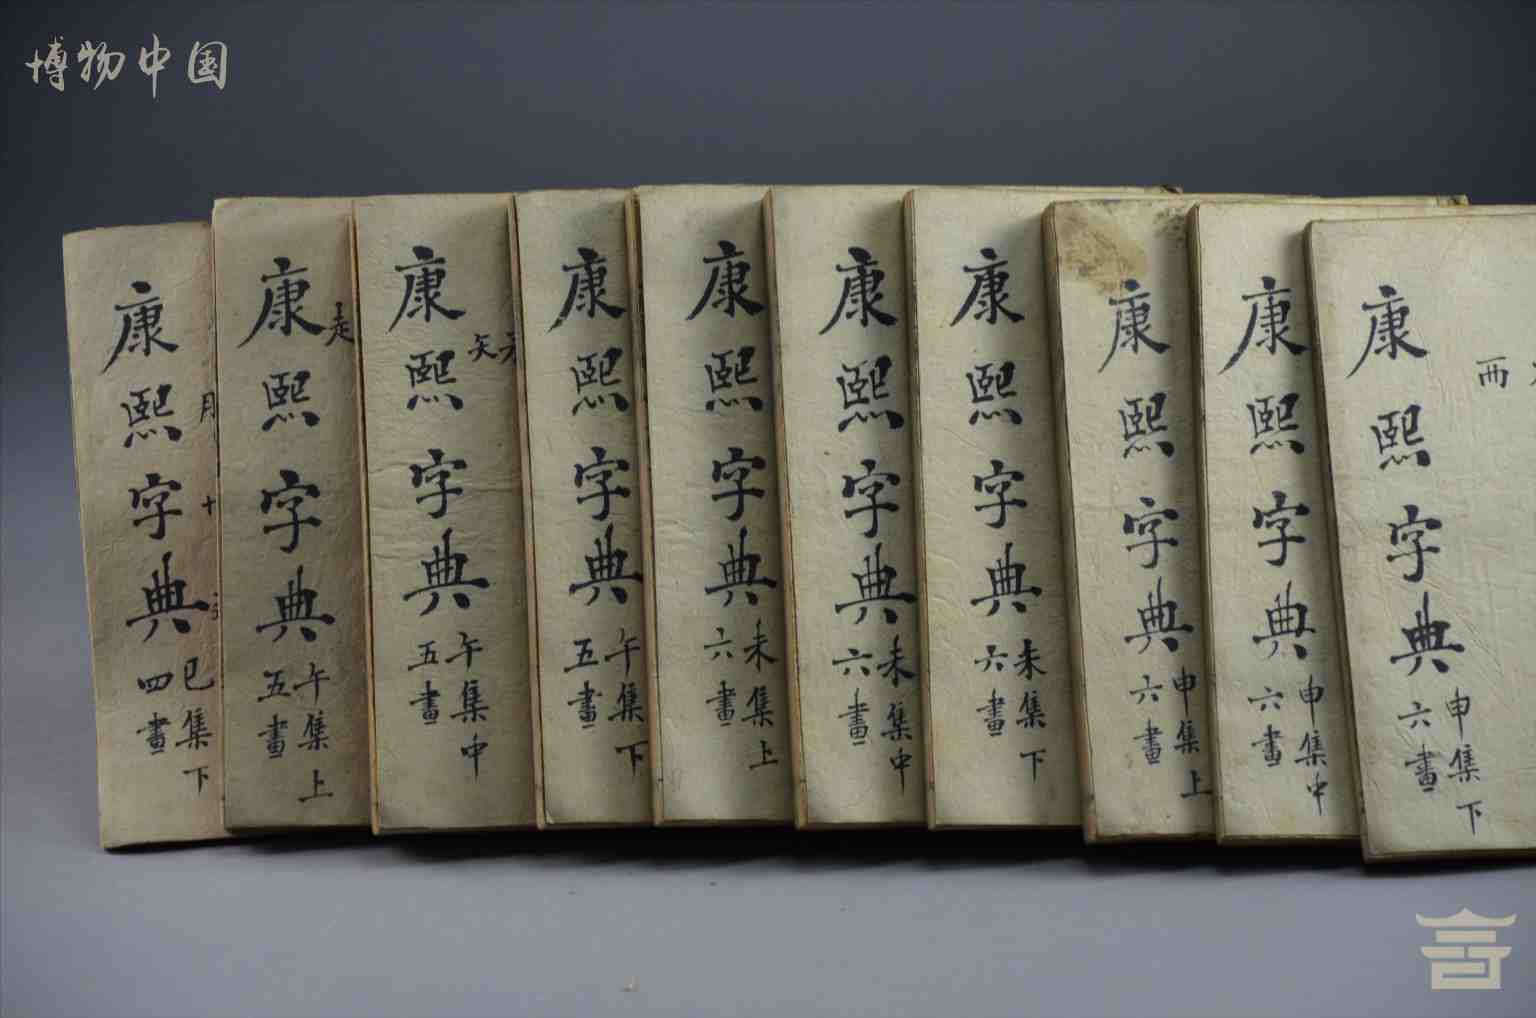 博物中国
康熙字典
巳集下
四畫
康熙字典
午集上
五畫
康熙字典
午集中
五畫
矢
康熙字典
午集下
五畫
康熙字典
未集上
六畫
康熙字典
未集中
六畫
康熙字典
未集下
六畫
康熙字典
申集上
六畫
康熙字典
申集中
六畫
康熙字典
申集下
六畫
西